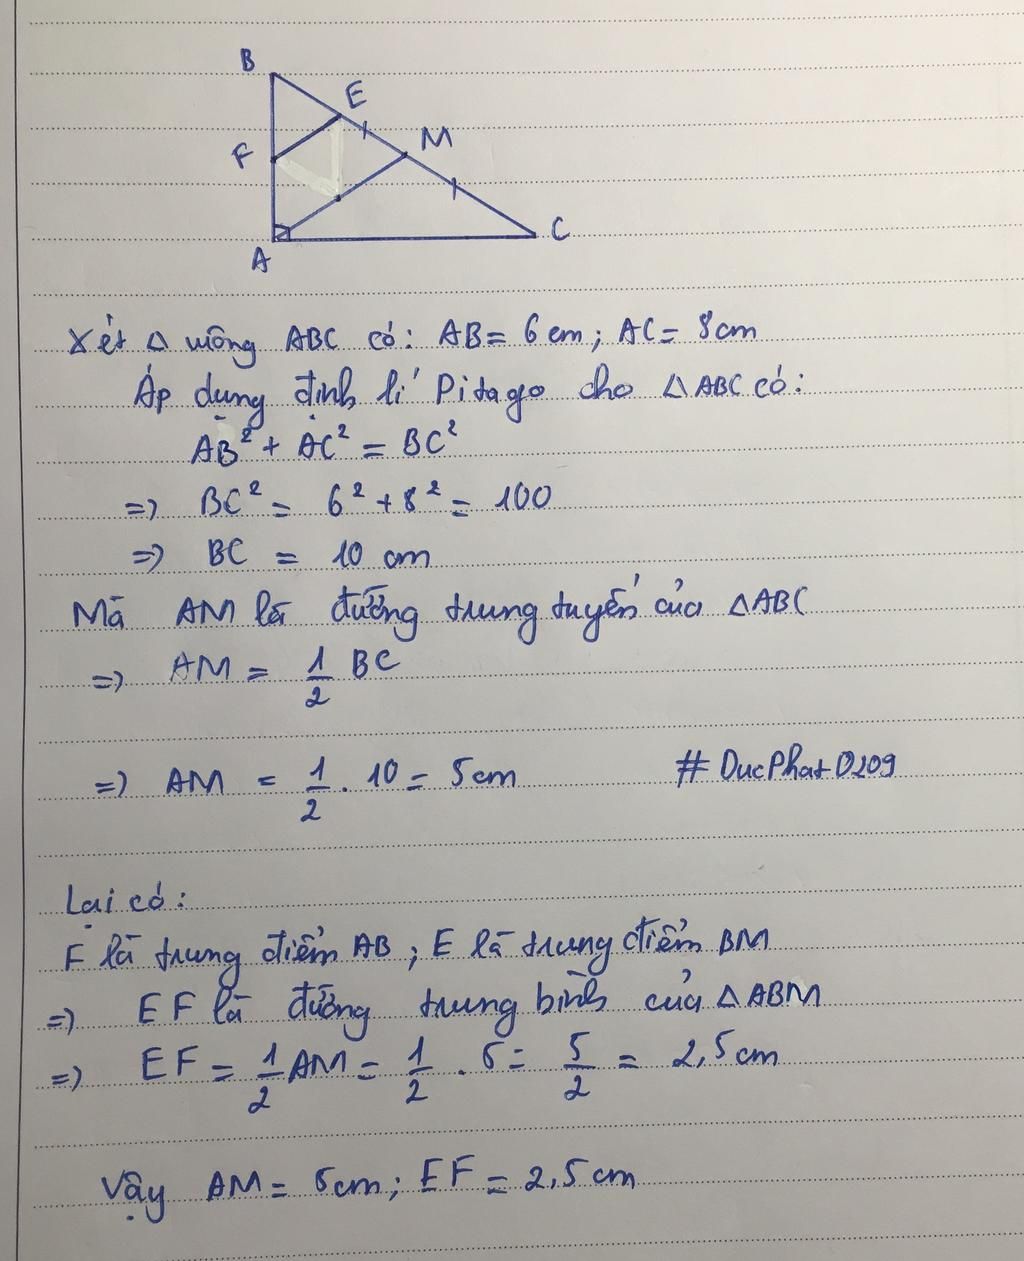 B
E
M
F
A
C
Xét Δ vuông ABC có: AB = 6 cm; AC = 8cm
Áp dụng định lí Pitago cho ΔABC có:
AB² + AC² = BC²
=> BC² = 6² + 8² = 100
=> BC = 10 cm
Mà AM là đường trung tuyến của ΔABC
=> AM = 1/2 BC
=> AM = 1/2 . 10 = 5cm #DucPhat0209
Lại có:
F là trung điểm AB ; E là trung điểm BM
=> EF là đường trung bình của ΔABM
=> EF = 1/2 AM = 1/2 . 5 = 5/2 = 2,5cm
Vậy AM = 5cm; EF = 2,5cm